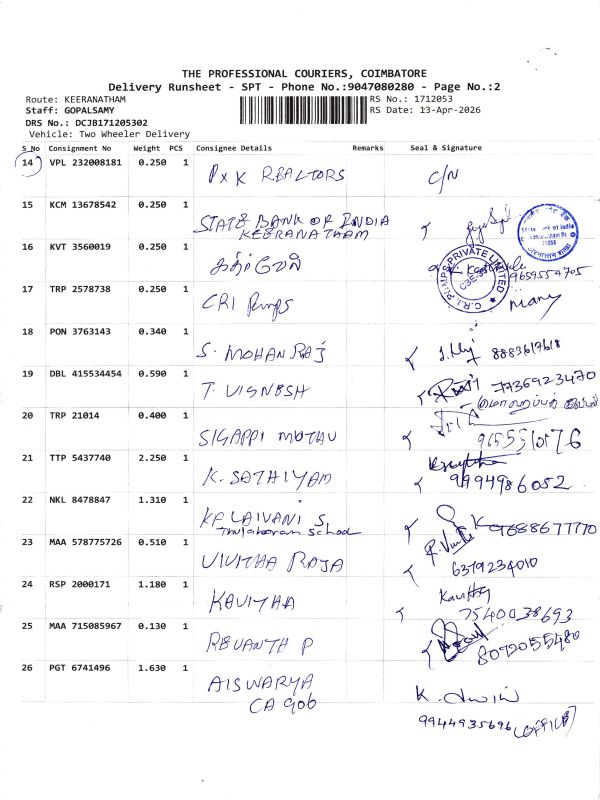 THE PROFESSIONAL COURIERS, COIMBATORE
Delivery Runsheet - SPT - Phone No.:9047080280 - Page No.:2
Route: KEERANATHAM RS No.: 1712053
Staff: GOPALSAMY RS Date: 13-Apr-2026
DRS No.: DCJB171205302
Vehicle: Two Wheeler Delivery
S_No Consignment No Weight PCS Consignee Details Remarks Seal & Signature
14 VPL 232008181 0.250 1 P x K REALTORS C/N
15 KCM 13678542 0.250 1 STATE BANK OF INDIA
KEERANATHAM
16 KVT 3560019 0.250 1 கதிர்வேல் 9659554705
C.R.I. PUMPS PRIVATE LIMITED
17 TRP 2578738 0.250 1 CRI Pumps Mani
18 PON 3763143 0.340 1 S. MOHAN RAJ 8883617618
19 DBL 415534454 0.590 1 T. VIGNESH 7736923470
20 TRP 21014 0.400 1 SIGAPPI MUTHU
21 TTP 5437740 2.250 1 K. SATHIYAM 9994986052
22 NKL 8478847 1.310 1 KALAIVANI S 9688677770
School
23 MAA 578775726 0.510 1 VIVITHA RAJA 6379234010
24 RSP 2000171 1.180 1 KAVITHA 7540038693
25 MAA 715085967 0.130 1 REVANTH P 8072055480
26 PGT 6741496 1.630 1 AISWARYA
CA 906
9944935696 (OFFICE)